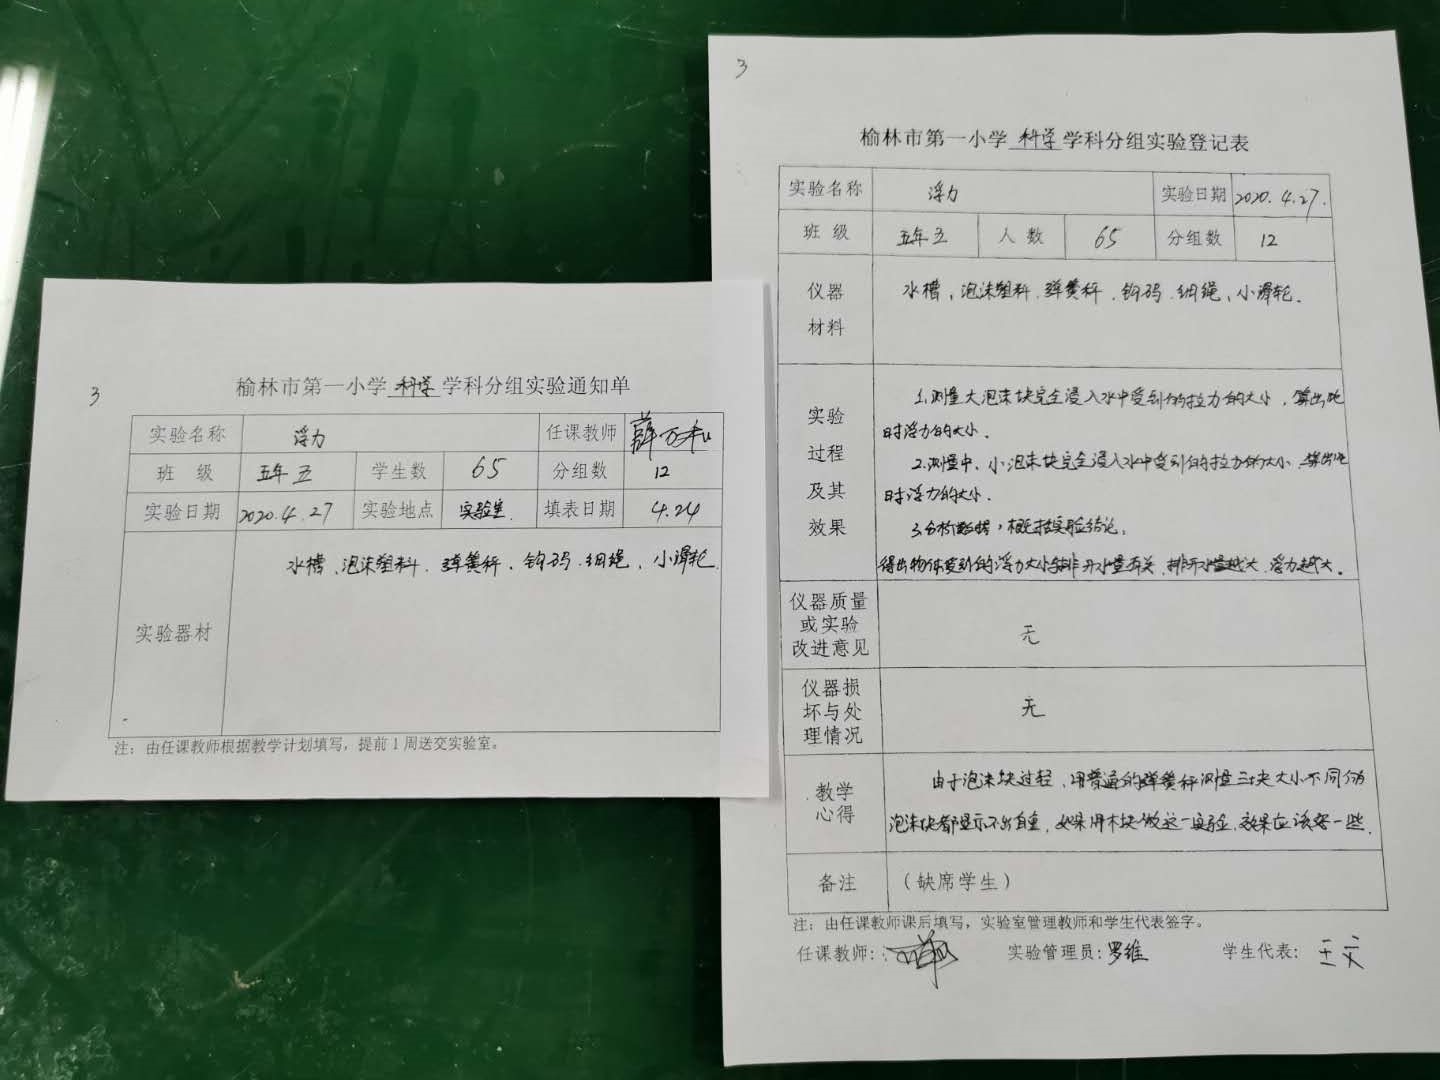 3
榆林市第一小学 科学 学科分组实验通知单
实验名称 浮力 任课教师
班 级 五年五 学生数 65 分组数 12
实验日期 2020.4.27 实验地点 实验室. 填表日期 4.24
实验器材 水槽、泡沫塑料、弹簧秤、钩码、细绳、小滑轮.
注：由任课教师根据教学计划填写，提前1周送交实验室。
3
榆林市第一小学 科学 学科分组实验登记表
实验名称 浮力 实验日期 2020.4.27.
班 级 五年五 人 数 65 分组数 12
仪器
材料
水槽、泡沫塑料、弹簧秤、钩码、细绳、小滑轮.
实验
过程
及其
效果
1.测量大泡沫块完全浸入水中受到的拉力的大小，算出此
时浮力的大小.
2.测量中、小泡沫块完全浸入水中受到的拉力的大小，算出此
时浮力的大小.
3.分析数据，概括实验结论.
得出物体受到的浮力大小与排开水量有关，排开水量越大，浮力越大.
仪器质量
或实验
改进意见
无
仪器损
坏与处
理情况
无
教学
心得
由于泡沫块过轻，用普通的弹簧秤测量三块大小不同的
泡沫块都显示不出自重，如果用木块做这一实验，效果应该好一些.
备注 （缺席学生）
注：由任课教师课后填写，实验室管理教师和学生代表签字。
任课教师： 实验管理员：罗维 学生代表：王文